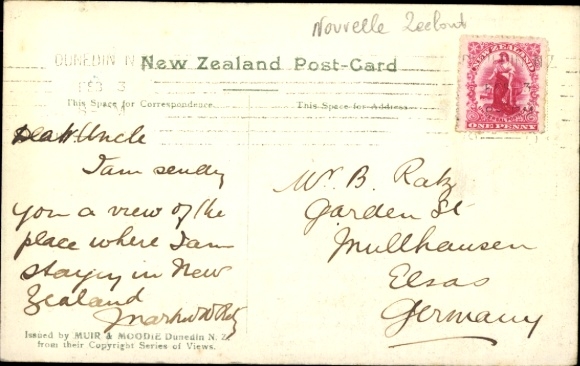 Nouvelle
DUNEDIN N
New Zealand Post-Card
FEB 3
This Space for Correspondence.
This Space for Address
NEW ZEALAND
ONE PENNY
Dear Uncle
I am sendg
you a view of the
place where I am
stayin in New
Zealand
Mr. B. Ratz
Garden St
Mullhausen
Elsas
Germany
Issued by MUIR & MOODIE Dunedin N. Z.
from their Copyright Series of Views.